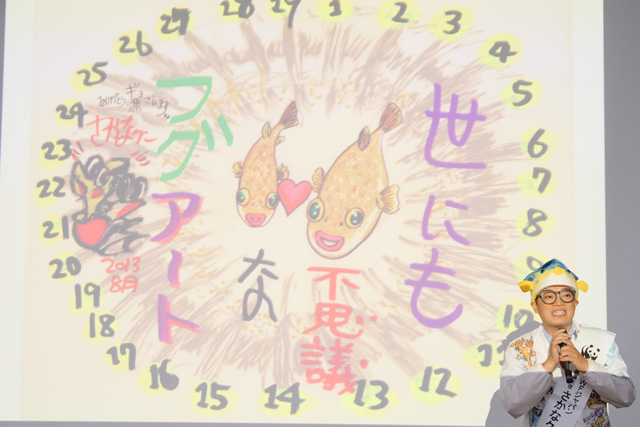 世にも
不思議
な
フグアート
さかなクン
2013
8月
1
2
3
4
5
6
7
8
9
10
11
12
13
14
15
16
17
18
19
20
21
22
23
24
25
26
27
28
29
ジャパン
さかなク